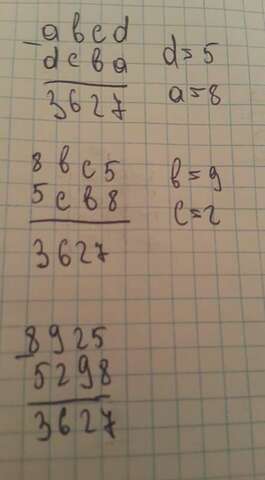 - a b c d
d c b a
3 6 2 7
d = 5
a = 8
8 b c 5
5 c b 8
3 6 2 7
b = 9
c = 2
- 8 9 2 5
5 2 9 8
3 6 2 7